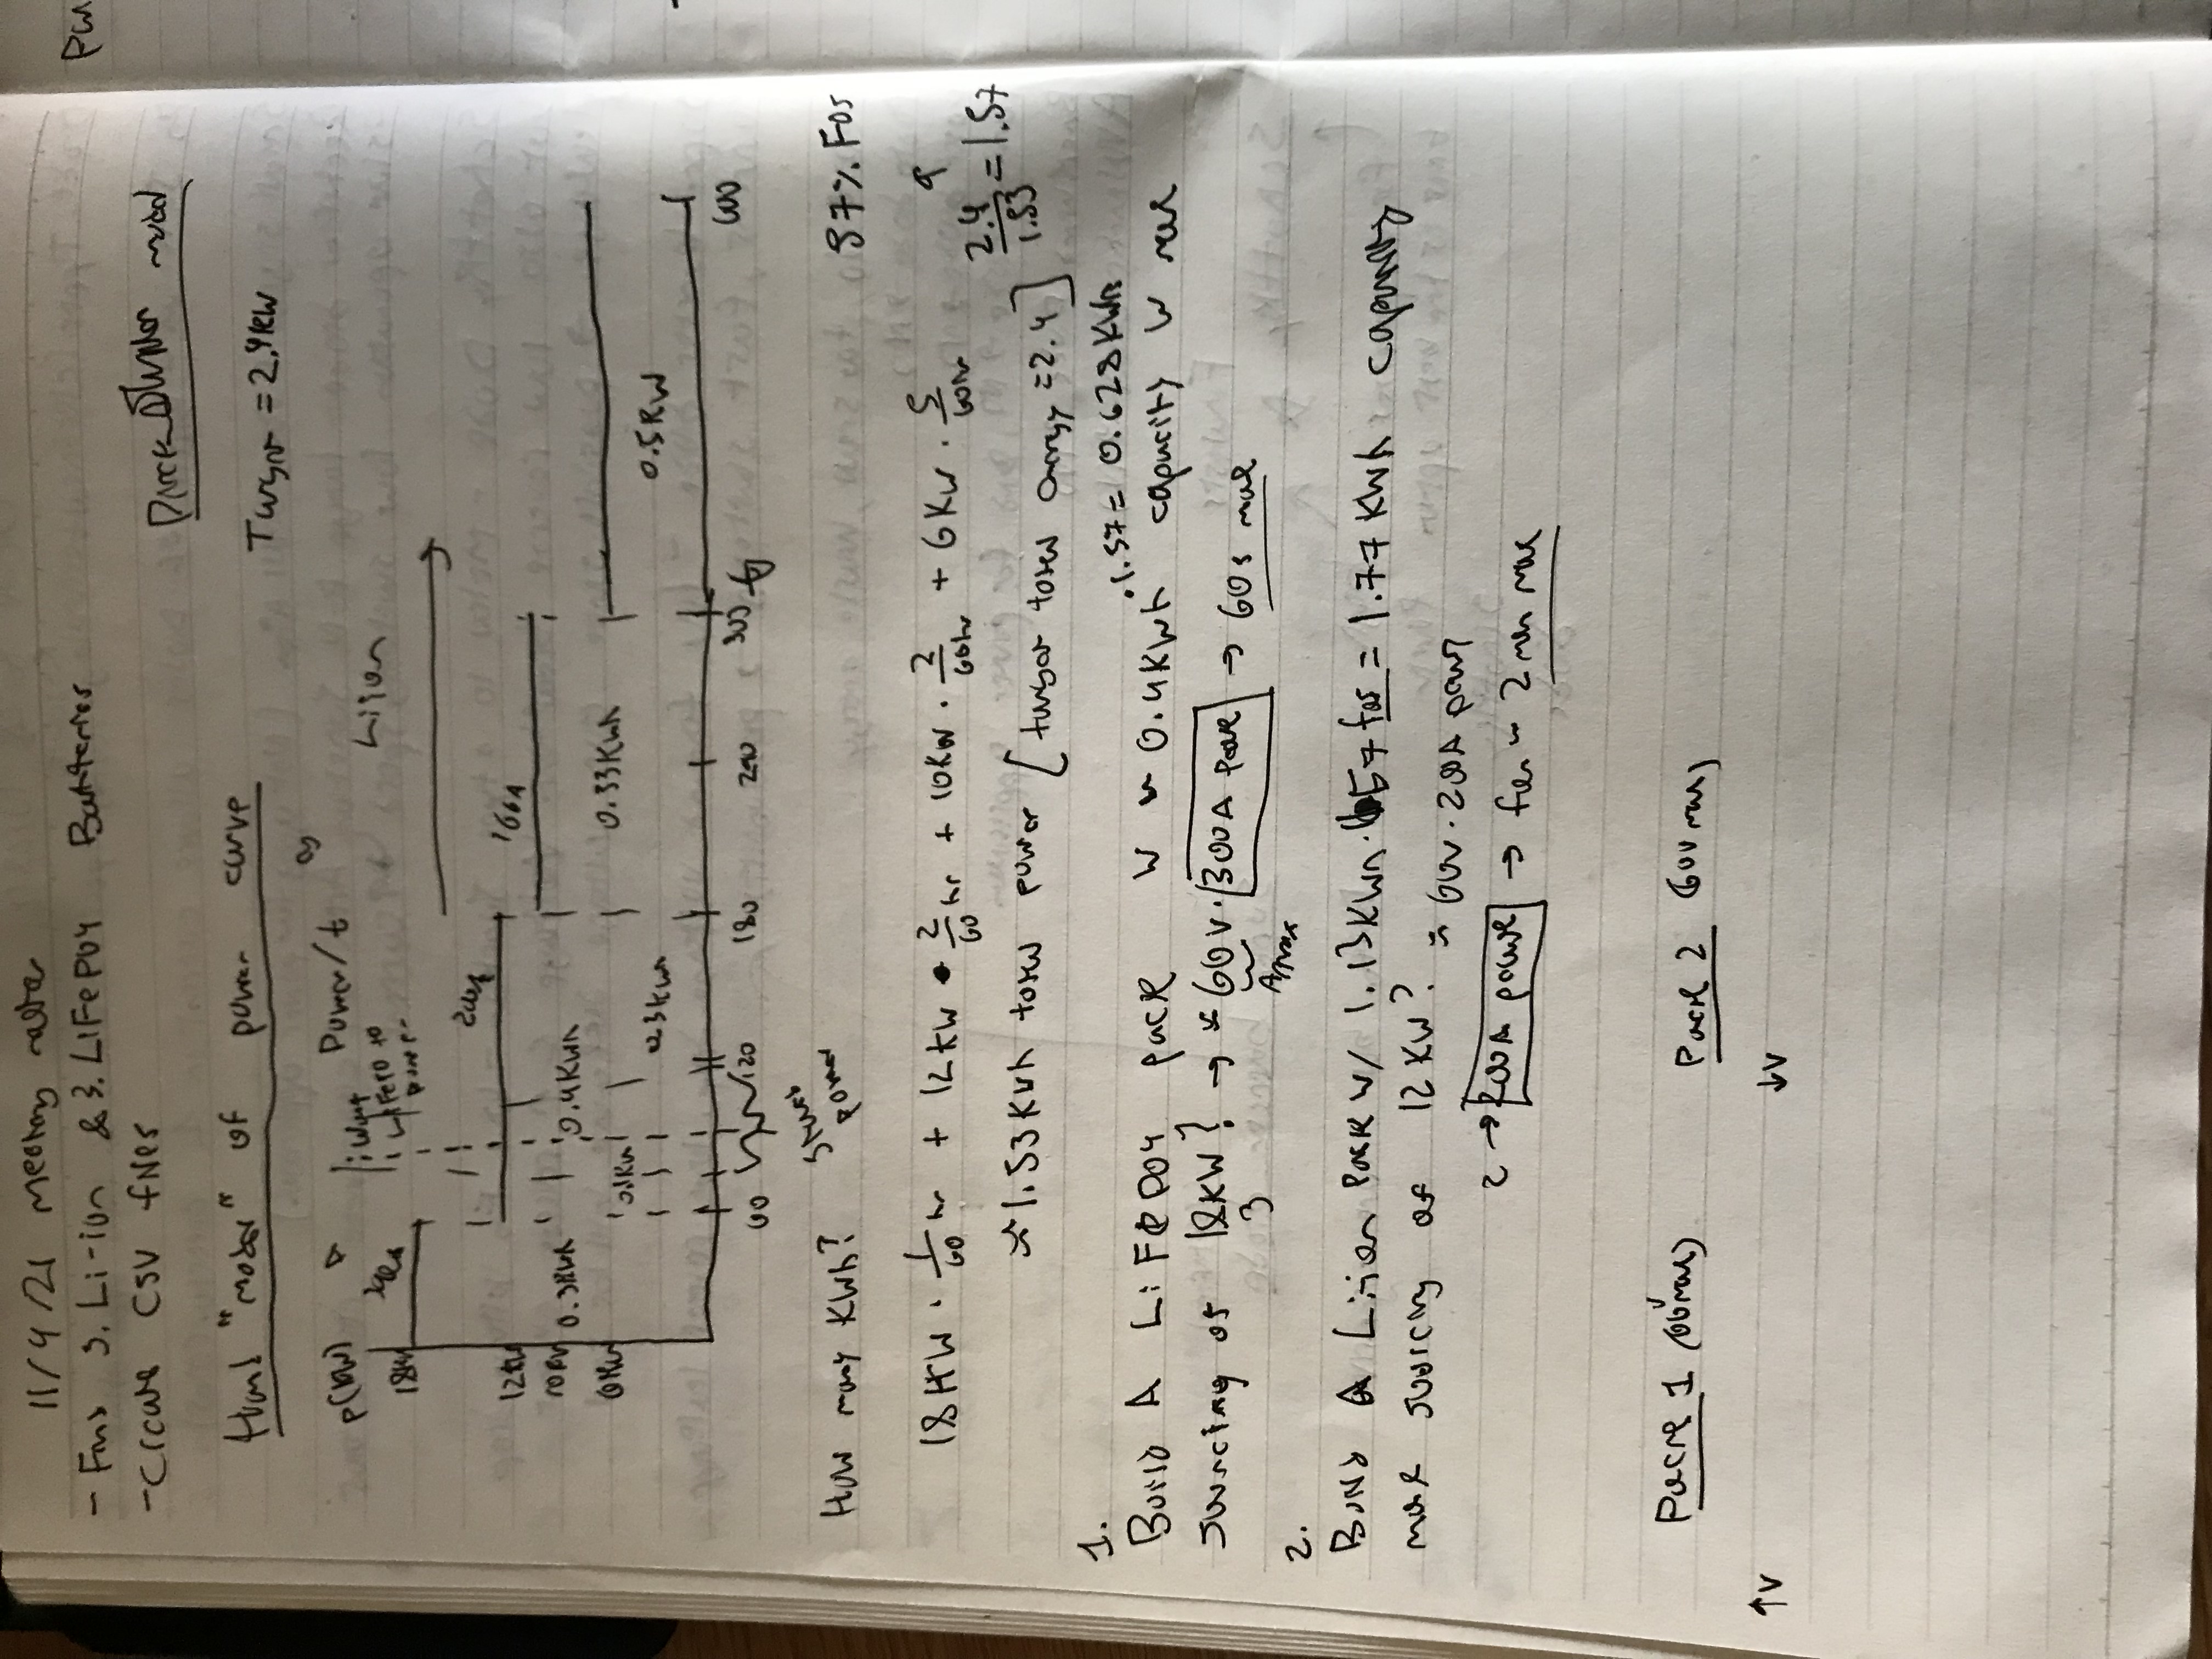 11/4/21 Meeting notes
- Find 3. Li-ion & 3. LiFePO4 Batteries
- Create CSV files
model
Hand "model" of power curve
Target = 2.4KW
P(kW)
Power/t
Want
LiFePO to
Power
Li ion
18KW
12KW
200A
166A
10KW
0.3KWh
0.4KWh
6KW
0.1KW
0.3KWh
0.33KWh
0.5KW
60
120
180
240
300
t
600
Shared
power
How many KWh?
57% FOS
18KW · 1/60 hr + 12KW · 2/60 hr + 10KW · 2/60 hr + 6KW · 5/60 hr
2.4/1.53 = 1.57
≈ 1.53KWh total power [target total energy = 2.4]
1.
·1.57 = 0.628KWh
Build A LiFePO4 pack w ~ 0.4KWh capacity w max
sourcing of 18KW? → ≈ 60V · 300A peak → 60s max
3
2.
Build A Li-ion Pack w/ 1.13KWh · 1.57 fos = 1.77KWh capacity
max sourcing of 12KW? ≈ 60V · 200A peak
2 → 200A peak → for ~ 2 min max
Pack 1 (60V max)
Pack 2 (60V max)
↑V
↓V